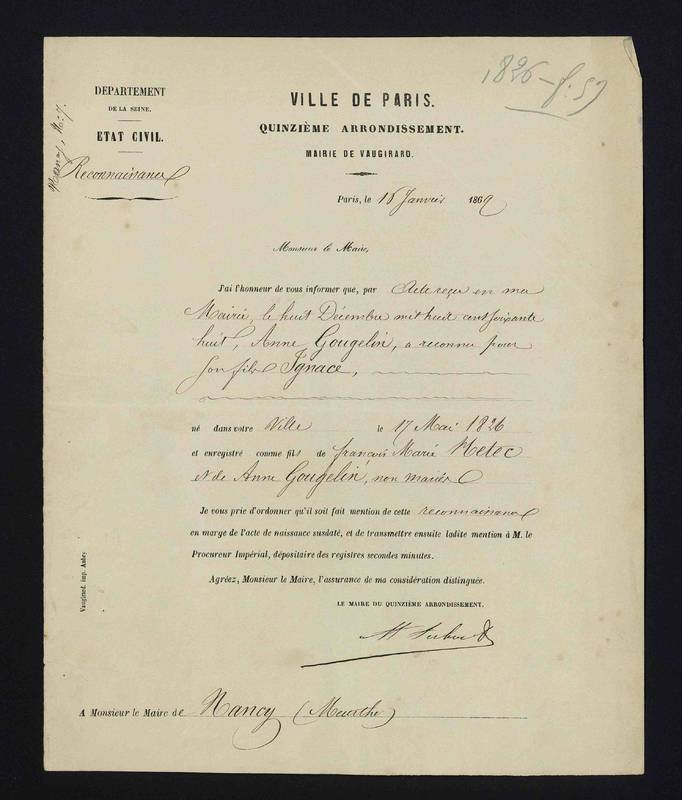 1826 - f. 59
DEPARTEMENT
DE LA SEINE.
ETAT CIVIL.
Reconnaissance
VILLE DE PARIS.
QUINZIÈME ARRONDISSEMENT.
MAIRIE DE VAUGIRARD.
Paris, le 18 Janvier 1869
Monsieur le Maire,
J'ai l'honneur de vous informer que, par Acte reçu en ma
Mairie, le huit Décembre mil huit cent soixante
huit, Anne Gougelin, a reconnu pour
son fils Ignace,
né dans votre Ville le 17 Mai 1826
et enregistré comme fils de françois Marie Hetec
et de Anne Gougelin, non mariés
Je vous prie d'ordonner qu'il soit fait mention de cette reconnaissance
en marge de l'acte de naissance susdaté, et de transmettre ensuite ladite mention à M. le
Procureur Impérial, dépositaire des registres secondes minutes.
Agréez, Monsieur le Maire, l'assurance de ma considération distinguée.
LE MAIRE DU QUINZIÈME ARRONDISSEMENT.
Vaugirard. imp. Aubry
A Monsieur le Maire de Nancy (Meurthe)